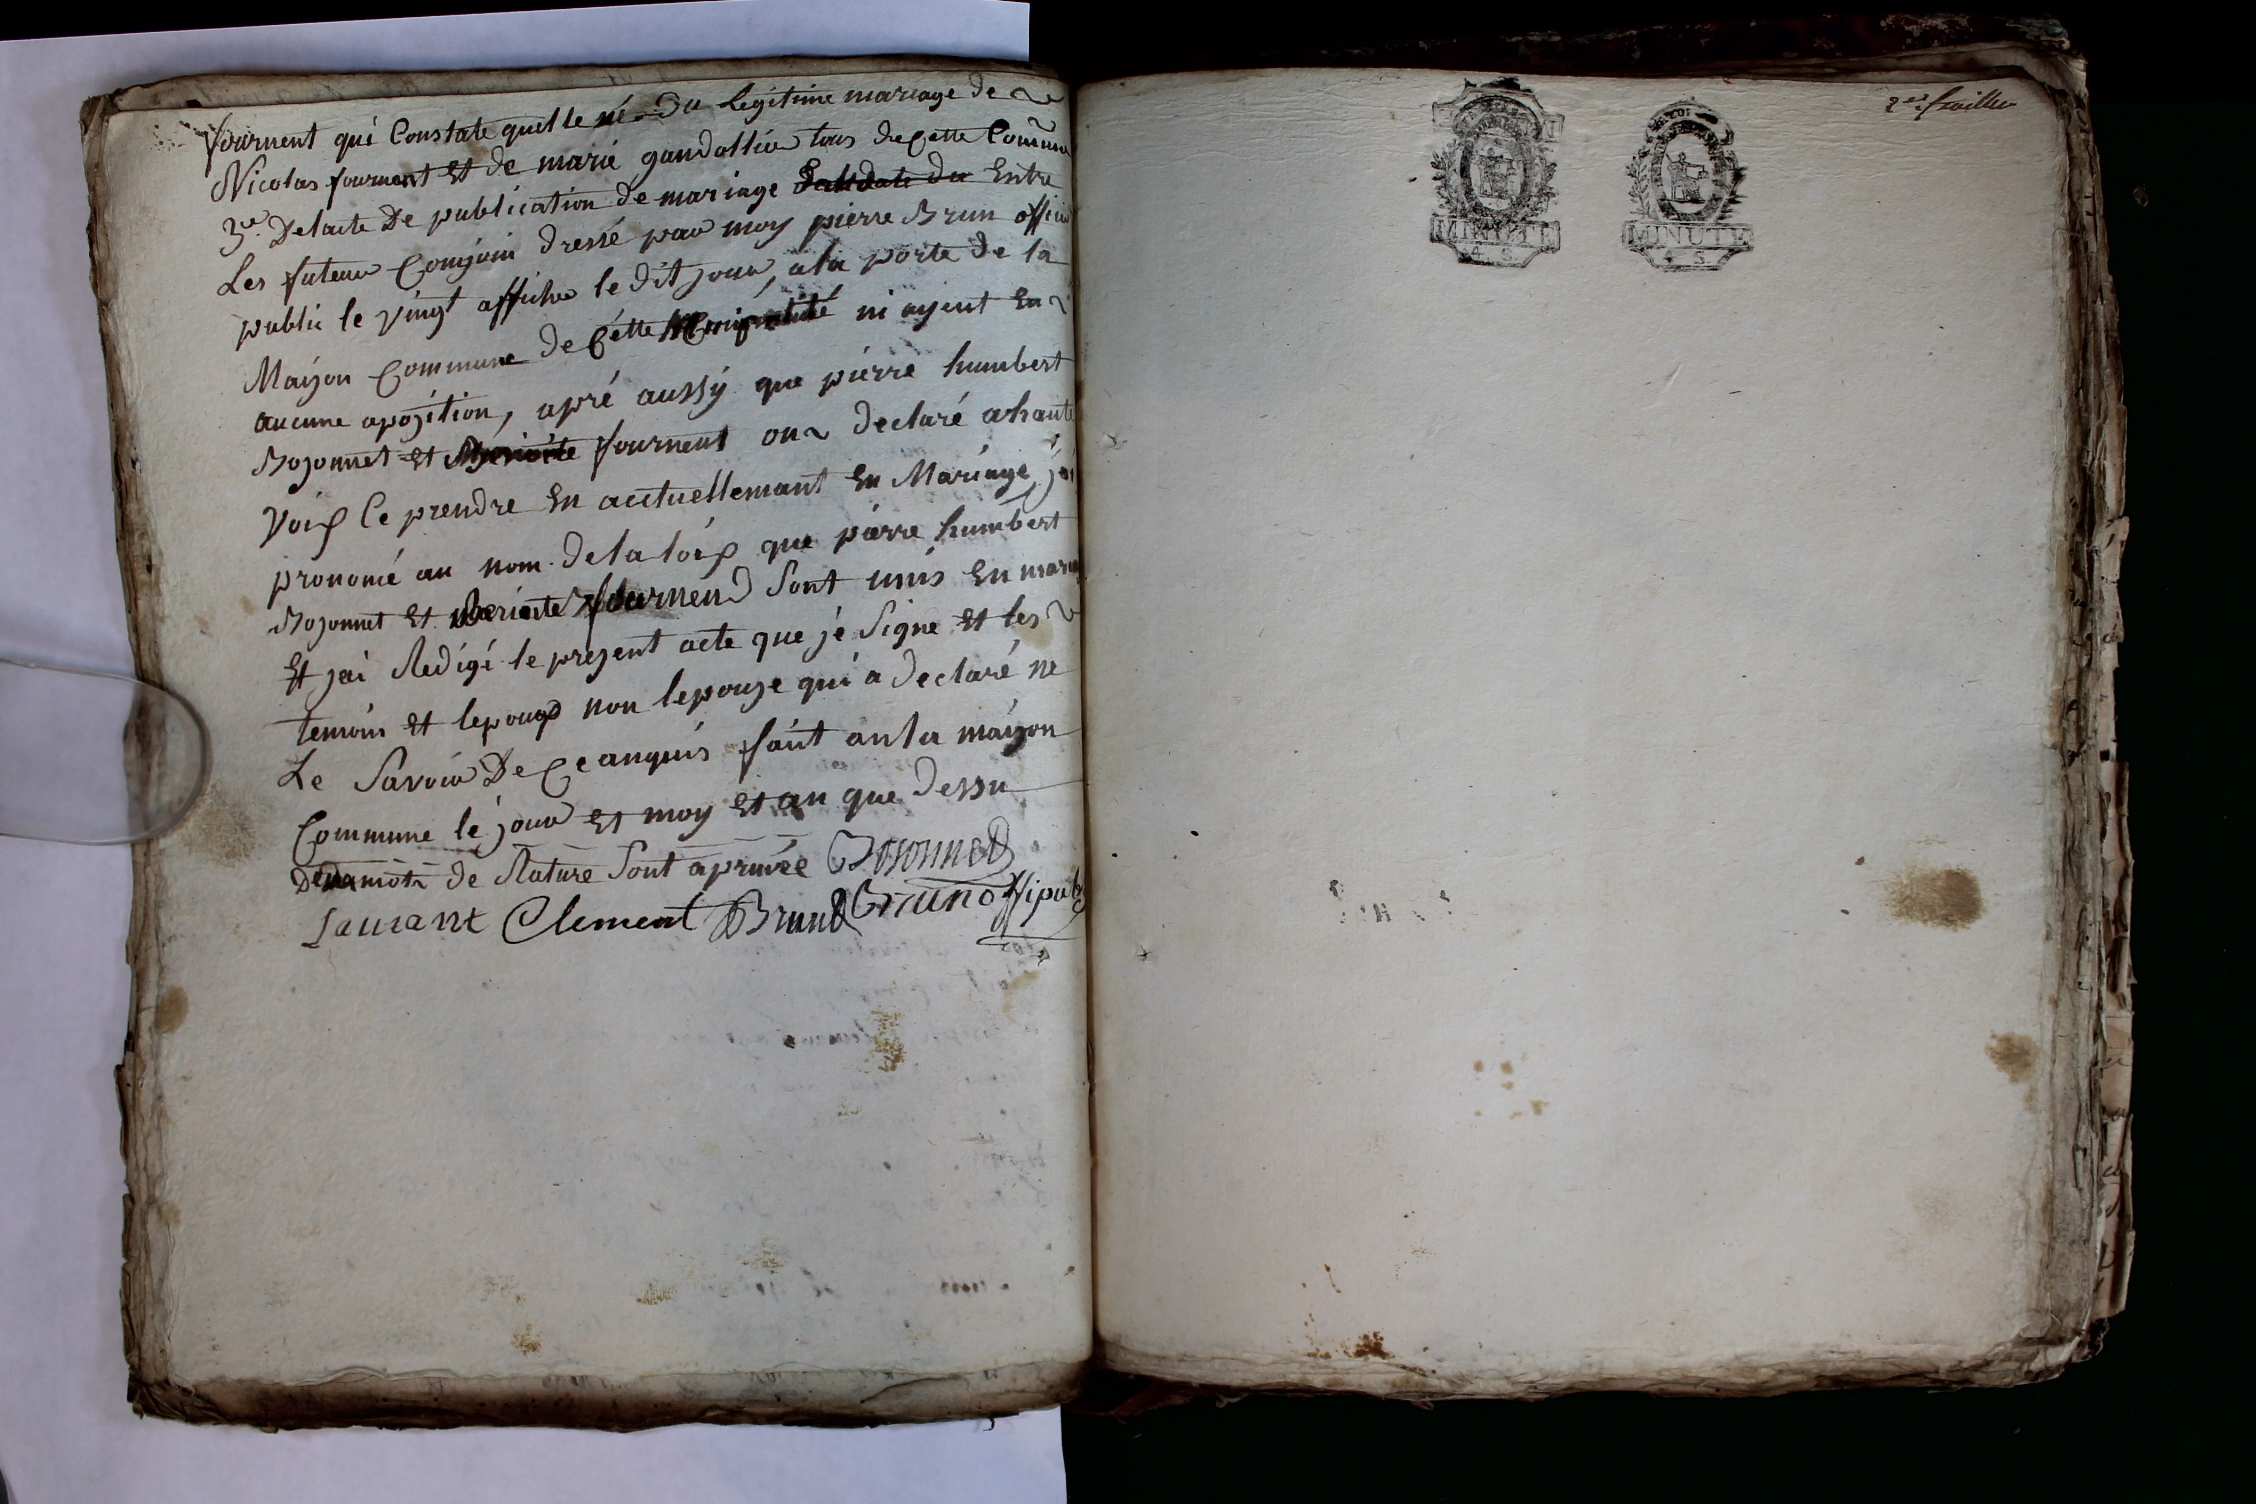 fournent qui Constate quelle né Du Legitime mariage de
Nicolas fournent Et de marie gandollier tous de Cette Commune
3e. Delacte De publication de mariage Entre
Les futeur Conjoin dressé par moy pierre Brun officier
public le vingt affiche le dit jour, a la porte de la
Maizon Commune de Cette ni ayent En
aucune apozition, apré aussy que pierre humbert
Bozonnet Et fournent on declaré a haute
Voix Ce prendre En actuellemant En Mariage, jai
prononcé au nom de la loix que pierre humbert
Bozonnet Et fournend Sont unis En mariage
Et jai Redigé le prezent acte que je Signe Et les
temoin Et lepoux non lepouze qui a declaré ne
Le Savoir De Ce anquis fait an la maizon
Commune lé jour Et moy Et an que Dessu
mots de Rature Sont apruvée Bosonnet
Laurant Clement Brun Brun offi pub
2e. feuillet
MINUTE
4 S.
MINUTE
4 S.